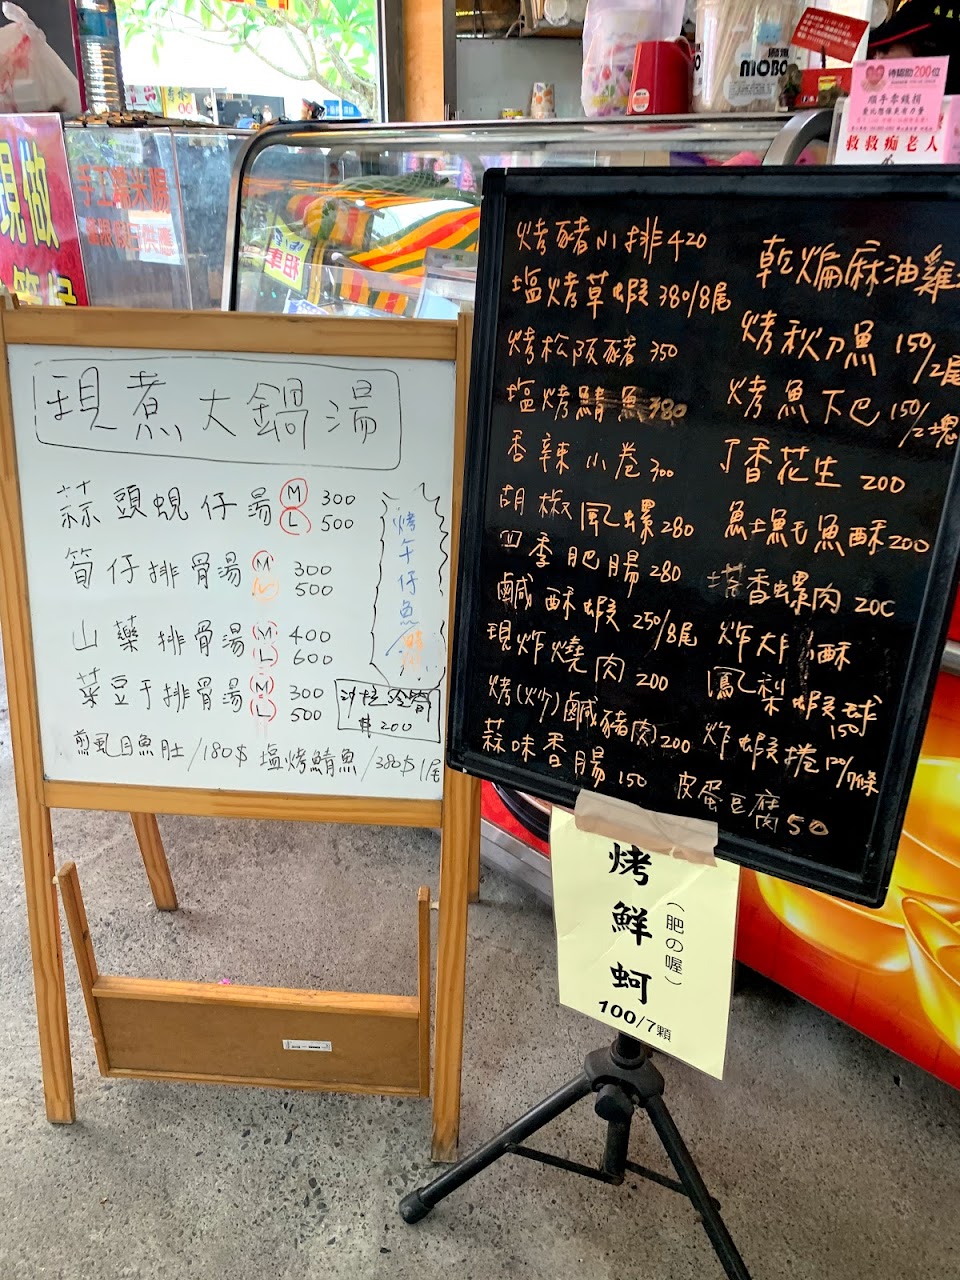 現做
手工糯米腸
租車
MOBO
待認助200位
順手零錢捐
救救痴老人
現煮大鍋湯
蒜頭蜆仔湯 M 300
L 500
筍仔排骨湯 M 300
L 500
山藥排骨湯 M 400
L 600
菜豆干排骨湯 M 300
L 500
烤午仔魚
沙拉冷筍
$200
煎虱目魚肚/180$ 塩烤鯖魚/380$1尾
烤豬小排420
塩烤草蝦380/8尾
烤松阪豬350
塩烤鯖魚380
香辣小卷300
胡椒風螺280
四季肥腸280
鹹酥蝦250/8尾
現炸燒肉200
烤(炒)鹹豬肉200
蒜味香腸150
乾煸麻油雞
烤秋刀魚150/2尾
烤魚下巴150/2塊
丁香花生200
魠魚酥200
塔香螺肉200
炸
酥
鳳梨蝦球
150
炸蝦捲120/7條
皮蛋豆腐50
烤鮮蚵
(肥の喔)
100/7顆